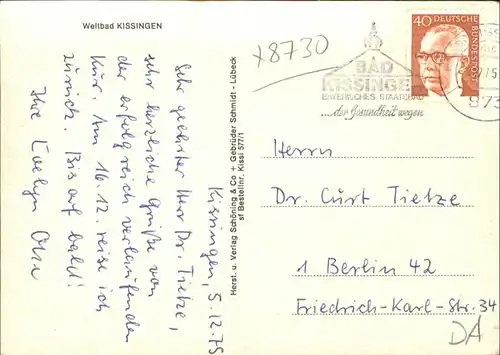 Weltbad KISSINGEN
x8730
BAD
KISSINGEN
BAYERISCHES STAATSBAD
...der Gesundheit wegen
40 DEUTSCHE
BUNDESPOST
Kissingen, 5.12.75
Sehr geehrter Herr Dr. Tietze,
sehr herzliche Grüße von
der erfolgreich verlaufenden
Kur. Am 16.12. reise ich
zurück. Bis auf bald!
Ihre Evelyn
Herst. u. Verlag Schöning & Co + Gebrüder Schmidt - Lübeck
sf Bestellnr. Kissi 577/1
Herrn
Dr. Curt Tietze
1 Berlin 42
Friedrich-Karl-Str. 34
DA